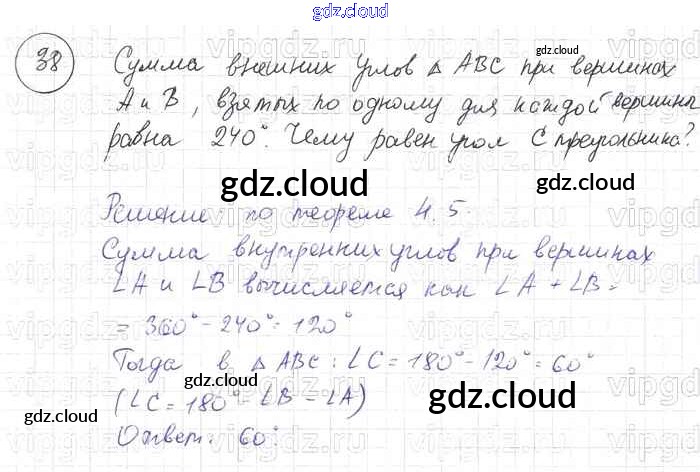 gdz.cloud
38
Сумма внешних углов △ ABC при вершинах
A и B, взятых по одному для каждой вершины
равна 240°. Чему равен угол C треугольника?
gdz.cloud
Решение: по теореме 4.5.
Сумма внутренних углов при вершинах
∠A и ∠B вычисляется как ∠A + ∠B =
= 360° - 240° = 120°
Тогда в △ ABC: ∠C = 180° - 120° = 60°
(∠C = 180° - ∠B - ∠A)
Ответ: 60°.
gdz.cloud
gdz.cloud
gdz.cloud
gdz.cloud
gdz.cloud